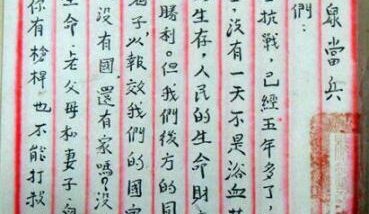 當兵
們：
抗戰，已經五年多了，
沒有一天不是浴血
的生存，人民的生命財
勝利。但我們後方的同
子，以報效我們的國家
沒有國，還有家嗎？沒
生命，老父母和妻子，
你有槍桿也不能打敵